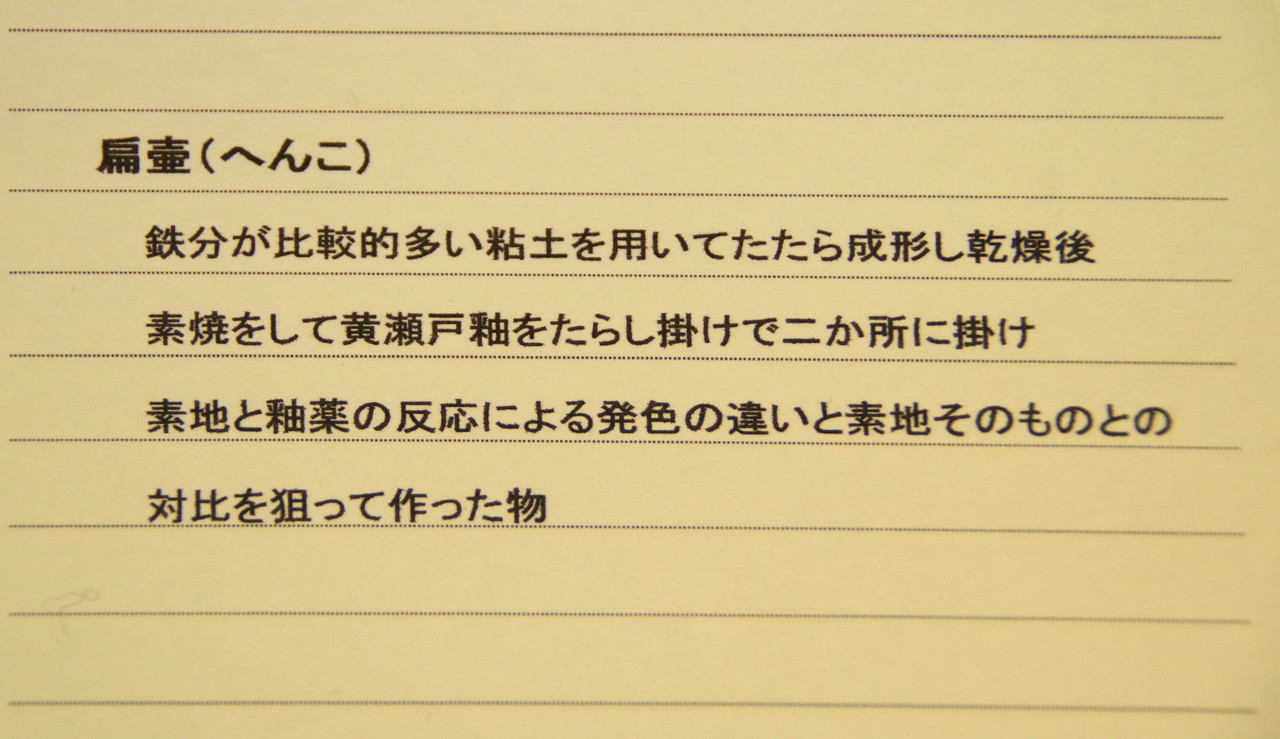 扁壷(へんこ)
鉄分が比較的多い粘土を用いてたたら成形し乾燥後
素焼をして黄瀬戸釉をたらし掛けで二か所に掛け
素地と釉薬の反応による発色の違いと素地そのものとの
対比を狙って作った物